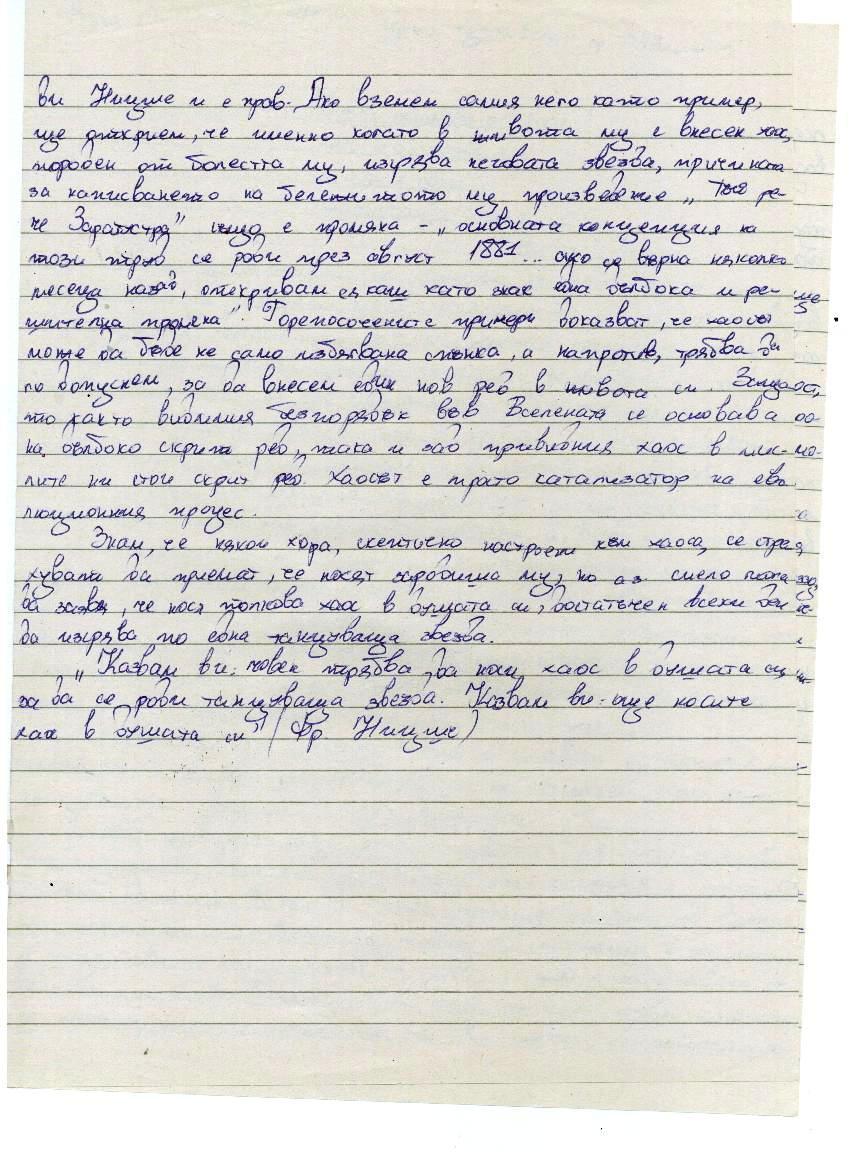 ви Ницше и е прав. Ако вземем самия него като пример,
ще открием, че именно когато в живота му е внесен хаос,
породен от болестта му, изгрява неговата звезда, причината
за написването на бележитото му произведение „Тъй ре-
че Заратустра" е промяна - „основната концепция на
този труд се роди през август 1881... ако се върна няколко
месеца назад, откривам като знак една дълбока и ре-
шителна промяна" Горепосочените примери доказват, че хаосът
може да бъде не само избягвана спънка, а напротив, трябва да
го допуснем, за да внесем един нов ред в живота си. Защото,
то както видимия безпорядък във Вселената се основава
на дълбоко скрит ред, така и зад привидния хаос в мис-
лите ни стои скрит ред. Хаосът е просто катализатор на ево-
люционния процес.
Знам, че някои хора, скептично настроени към хаоса, се стра-
хуват да приемат, че носят зародиша му, но аз смело мога
да заявя, че нося толкова хаос в душата си, достатъчен всеки ден
да изгрява по една танцуваща звезда.
„Казвам ви: човек трябва да носи хаос в душата си,
за да се роди танцуваща звезда. Казвам ви: още носите
хаос в душата си" (Фр. Ницше)